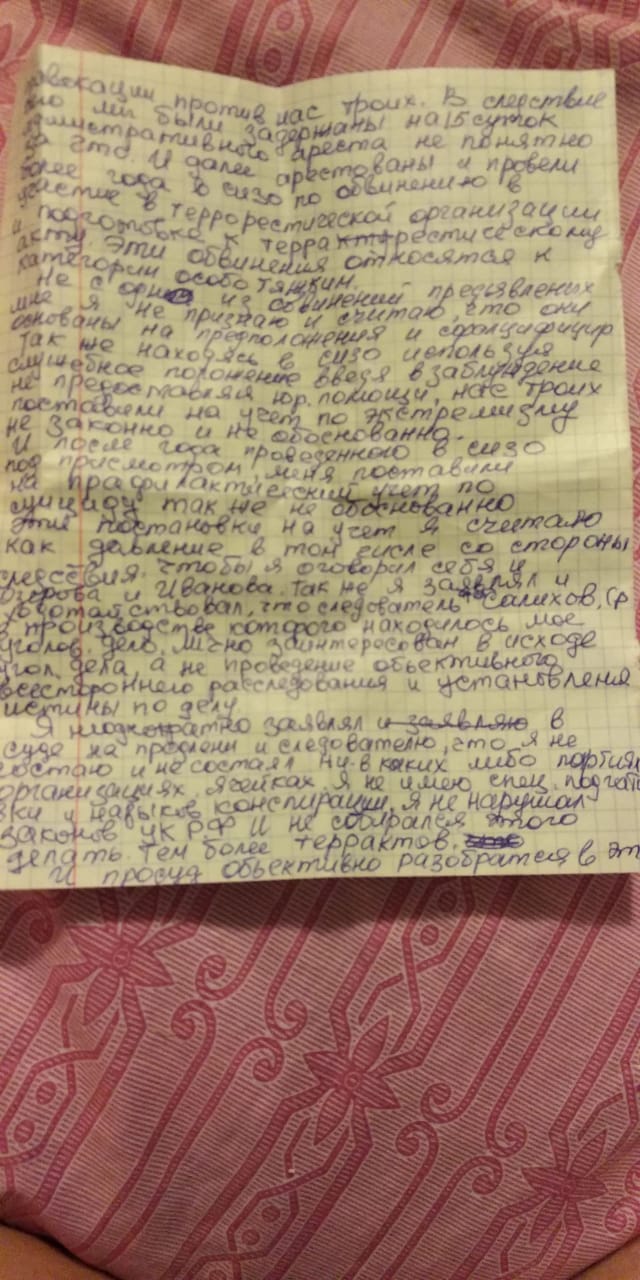 против нас троих. В следствие
чего мы были задержаны на 15 суток
административного ареста не понятно
за что. И далее арестованы и провели
более года в сизо по обвинению в
участие в террорестической организации
и подготовка к террактрестическому
акту. Эти обвинения относятся к
категории особо тяжких.
Не с одн из обвинений предьявленых
мне я не признаю и считаю, что они
основаны на предположения и сфалцифицир
Так же находясь в сизо используя
служебное положение введя в заблуждение
не предоставляя юр. помощи, нас троих
поставели на учет по экстремизму
не законно и не обоснованно.
И после года проведенного в сизо
под присмотром, меня поставили
на прафилактический учет по
суициду так же не обоснованно
Эти постановки на учет я считаю
как давление в том числе со стороны
следствия. Чтобы я оговорил себя и
Озерова и Иванова. Так же я заявлял и
что следователь Салихов, Ср
в производстве которого находилось мое
уголов. дело, лично заинтересован в исходе
угол. дела, а не проведение обьективного
всестороннего расследования и установленя
истины по делу.
Я неоднократно заявлял и заявляю в
суде на продлени и следователю, что я не
состаю и не состоял ни в каких либо партиях
организациях, ячейках, я не имею спец. подгато
вки и навыков конспирации, я не нарушал
законов УК РФ и не собирался этого
делать. Тем более террактов.
И просуд обьективно разобратся в эт